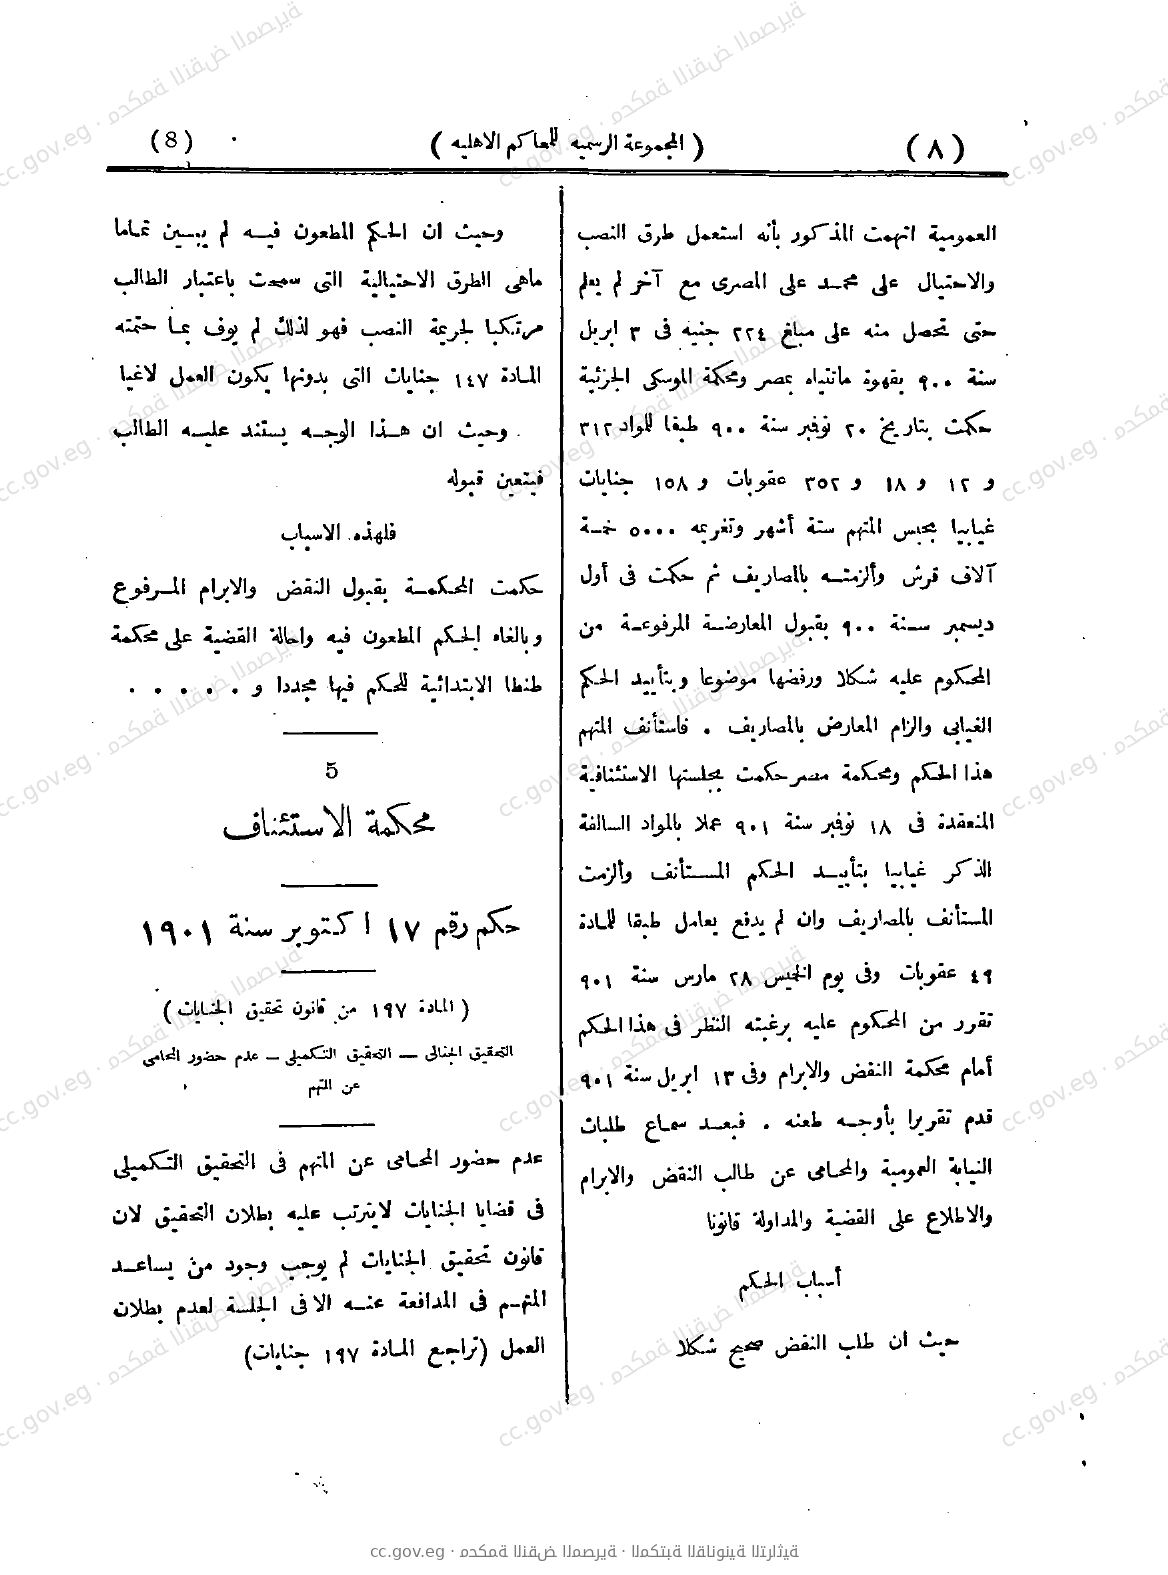 (٨)
( المجموعة الرسميه للمحاكم الاهليه )
(8)
العمومية اتهمت المذكور بأنه استعمل طرق النصب
والاحتيال على محمد على المصرى مع آخر لم يعلم
حتى تحصل منه على مبلغ ٢٢٤ جنيه فى ٣ ابريل
سنة ٩٠٠ بقهوة ماتتياه بمصر ومحكمة الموسكى الجزئية
حكمت بتاريخ ٢٠ نوفمبر سنة ٩٠٠ طبقا للمواد ٣١٢
و ١٢ و ١٨ و ٣٥٢ عقوبات و ١٥٨ جنايات
غيابيا بحبس المتهم ستة أشهر وتغريمه ٥٠٠٠ خمسة
آلاف قرش وألزمته بالمصاريف ثم حكمت فى أول
ديسمبر سنة ٩٠٠ بقبول المعارضة المرفوعة من
المحكوم عليه شكلا ورفضها موضوعا وبتأييد الحكم
الغيابى والزام المعارض بالمصاريف . فاستأنف المتهم
هذا الحكم ومحكمة مصر حكمت بجلستها الاستئنافية
المنعقدة فى ١٨ نوفمبر سنة ٩٠١ عملا بالمواد السالفة
الذكر غيابيا بتأييد الحكم المستأنف وألزمت
المستأنف بالمصاريف وان لم يدفع يعامل طبقا للمادة
٤٩ عقوبات وفى يوم الخميس ٢٨ مارس سنة ٩٠١
تقرر من المحكوم عليه برغبته النظر فى هذا الحكم
أمام محكمة النقض والابرام وفى ١٣ ابريل سنة ٩٠١
قدم تقريرا بأوجه طعنه . فبعد سماع طلبات
النيابة العمومية والمحامى عن طالب النقض والابرام
والاطلاع على القضية والمداولة قانونا
أسباب الحكم
حيث ان طلب النقض صحيح شكلا
وحيث ان الحكم المطعون فيه لم يبين تماما
ماهى الطرق الاحتيالية التى سمحت باعتبار الطالب
مرتكبا لجريمة النصب فهو لذلك لم يوف بما حتمته
المادة ١٤٧ جنايات التى بدونها يكون العمل لاغيا
وحيث ان هذا الوجه يستند عليه الطالب
فيتعين قبوله
فلهذه الاسباب
حكمت المحكمة بقبول النقض والابرام المرفوع
وبالغاء الحكم المطعون فيه واحالة القضية على محكمة
طنطا الابتدائية للحكم فيها مجددا و . . . . . .
5
محكمة الاستئناف
حكم رقم ١٧ اكتوبر سنة ١٩٠١
( المادة ١٩٧ من قانون تحقيق الجنايات )
التحقيق الجنائى — التحقيق التكميلى — عدم حضور المحامى
عن المتهم
عدم حضور المحامى عن المتهم فى التحقيق التكميلى
فى قضايا الجنايات لايترتب عليه بطلان التحقيق لان
قانون تحقيق الجنايات لم يوجب وجود من يساعد
المتهم فى المدافعة عنه الا فى الجلسة لعدم بطلان
العمل (تراجع المادة ١٩٧ جنايات)
cc.gov.eg · محكمة النقض المصرية · المكتبة القانونية التراثية